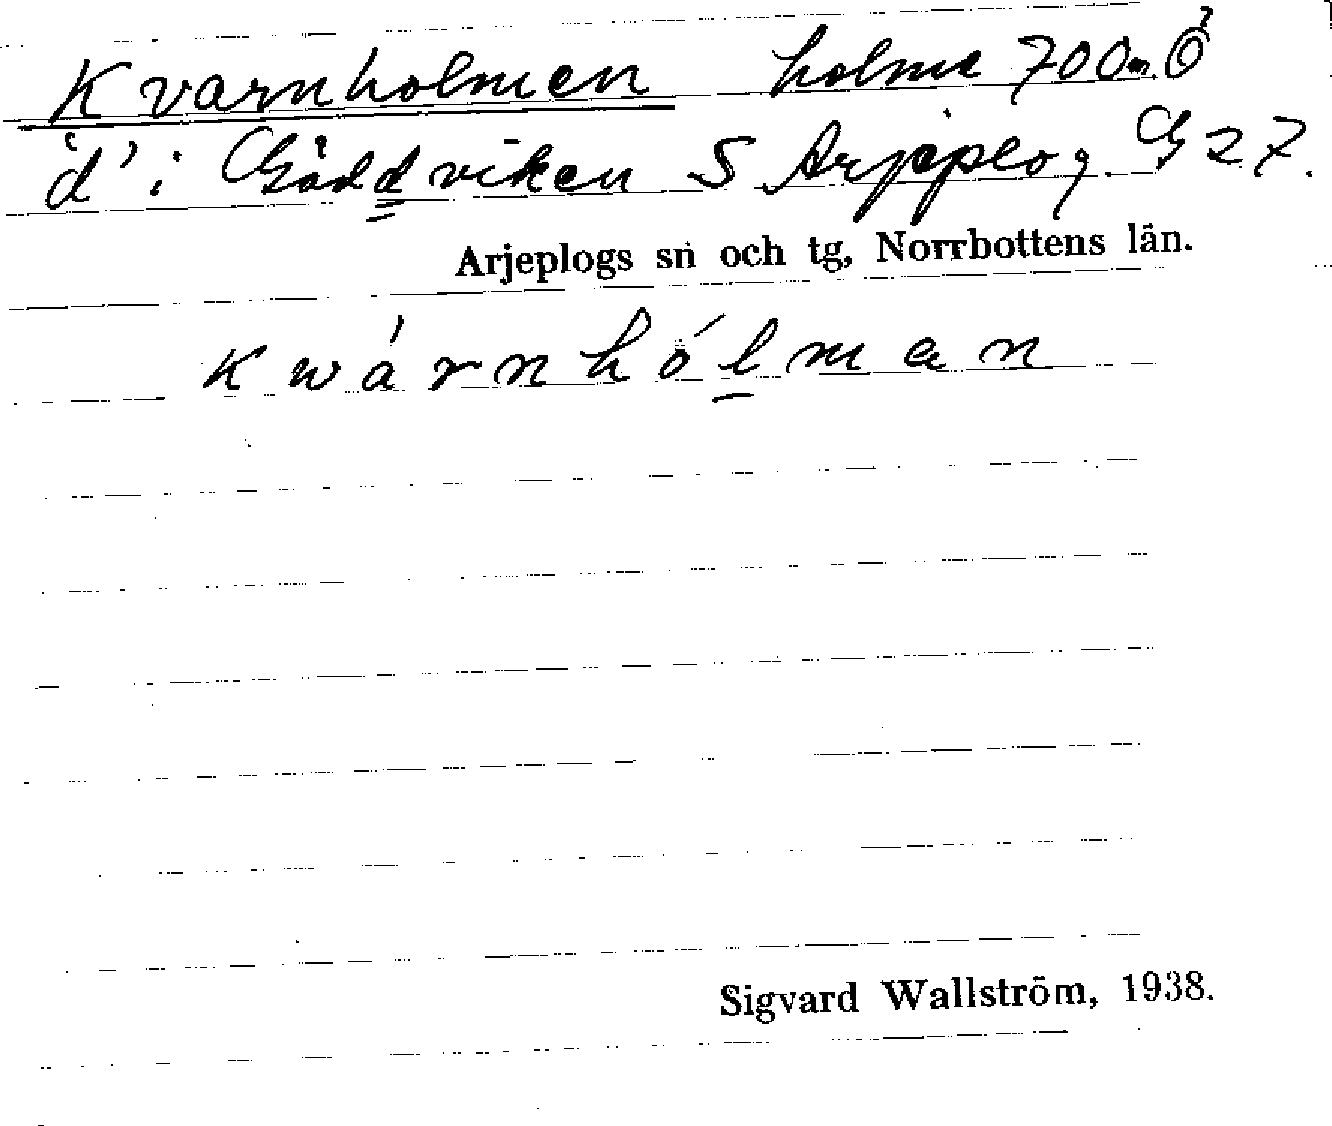 Kvarnholmen holme 700 m Ö
'd' i Gäddviken S Arjeplog G 27.
Arjeplogs sn och tg, Norrbottens län.
kwárnhólman
Sigvard Wallström, 1938.